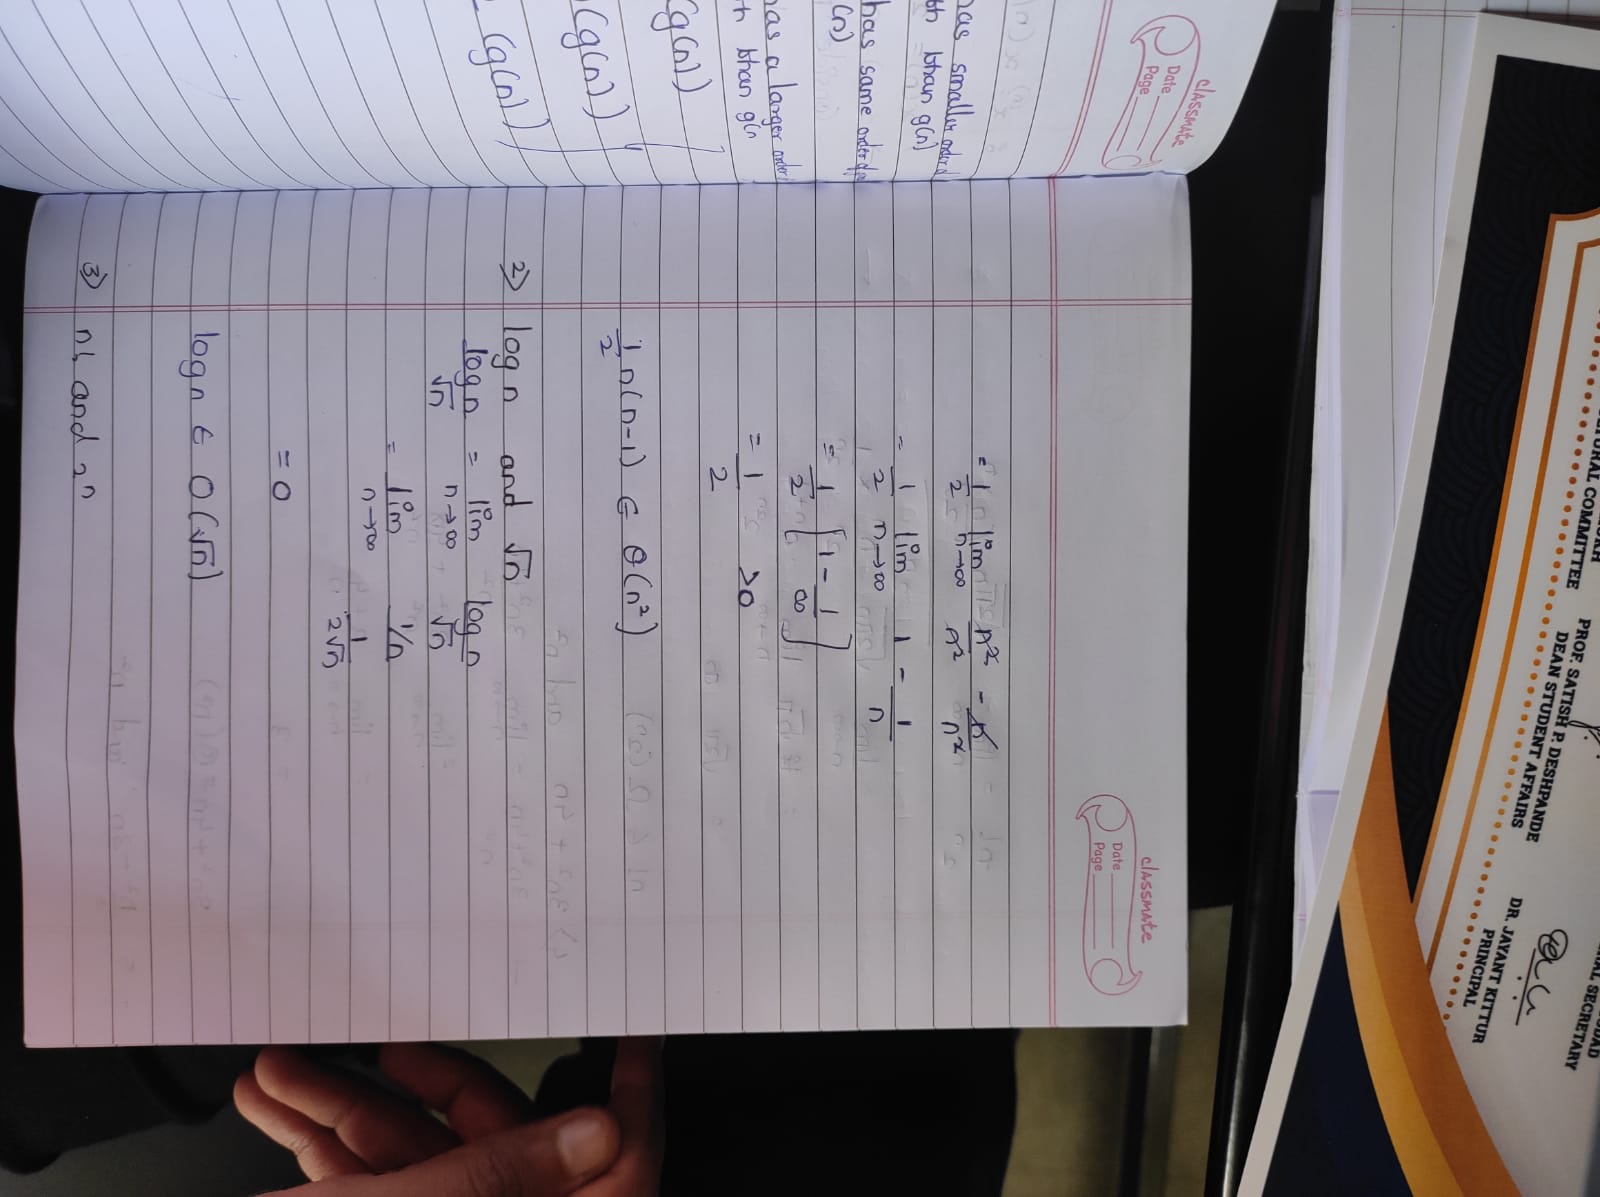 COMMITTEE
PROF. SATISH P. DESHPANDE
DEAN STUDENT AFFAIRS
SECRETARY
DR. JAYANT KITTUR
PRINCIPAL
classmate
Date
Page
has smaller order
than g(n)
has same order of
(n)
has a larger order
than g(n
(g(n))
(g(n))
(g(n))
classmate
Date
Page
= 1/2 lim n→∞ n²/n² - n/n²
= 1/2 lim n→∞ 1 - 1/n
= 1/2 [1 - 1/∞]
= 1/2 >0
1/2 n(n-1) ∈ θ(n²)
2) log n and √n
log n/√n = lim n→∞ log n/√n
= lim n→∞ 1/n / 1/2√n
= 0
log n ∈ O(√n)
3) n! and 2ⁿ